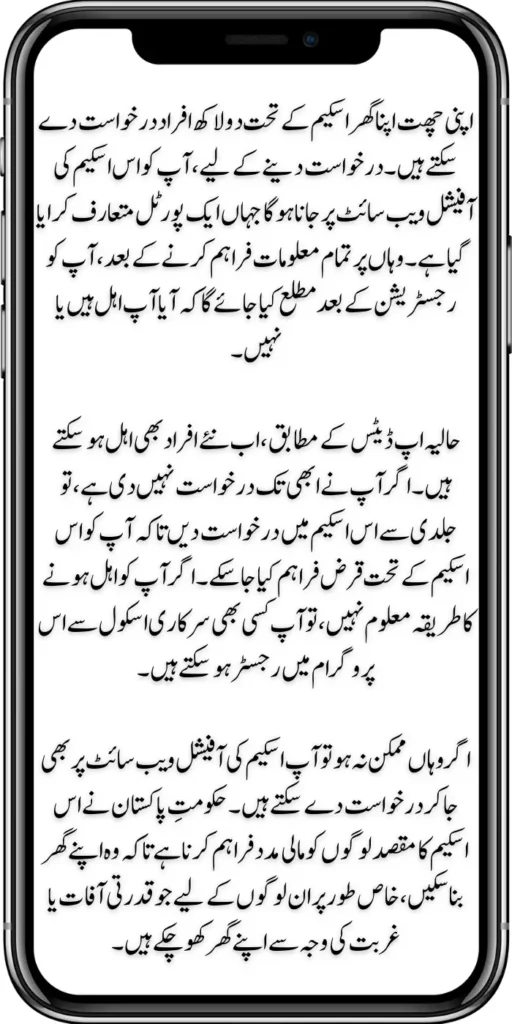 اپنی چھت اپنا گھر اسکیم کے تحت دو لاکھ افراد درخواست دے
سکتے ہیں۔ درخواست دینے کے لیے، آپ کو اس اسکیم کی
آفیشل ویب سائٹ پر جانا ہوگا جہاں ایک پورٹل متعارف کرایا
گیا ہے۔ وہاں پر تمام معلومات فراہم کرنے کے بعد، آپ کو
رجسٹریشن کے بعد مطلع کیا جائے گا کہ آیا آپ اہل ہیں یا
نہیں۔
حالیہ اپ ڈیٹس کے مطابق، اب نئے افراد بھی اہل ہو سکتے
ہیں۔ اگر آپ نے ابھی تک درخواست نہیں دی ہے، تو
جلدی سے اس اسکیم میں درخواست دیں تاکہ آپ کو اس
اسکیم کے تحت قرض فراہم کیا جا سکے۔ اگر آپ کو اہل ہونے
کا طریقہ معلوم نہیں، تو آپ کسی بھی سرکاری اسکول سے اس
پروگرام میں رجسٹر ہو سکتے ہیں۔
اگر وہاں ممکن نہ ہو تو آپ اسکیم کی آفیشل ویب سائٹ پر بھی
جا کر درخواست دے سکتے ہیں۔ حکومتِ پاکستان نے اس
اسکیم کا مقصد لوگوں کو مالی مدد فراہم کرنا ہے تاکہ وہ اپنے گھر
بنا سکیں، خاص طور پر ان لوگوں کے لیے جو قدرتی آفات یا
غربت کی وجہ سے اپنے گھر کھو چکے ہیں۔